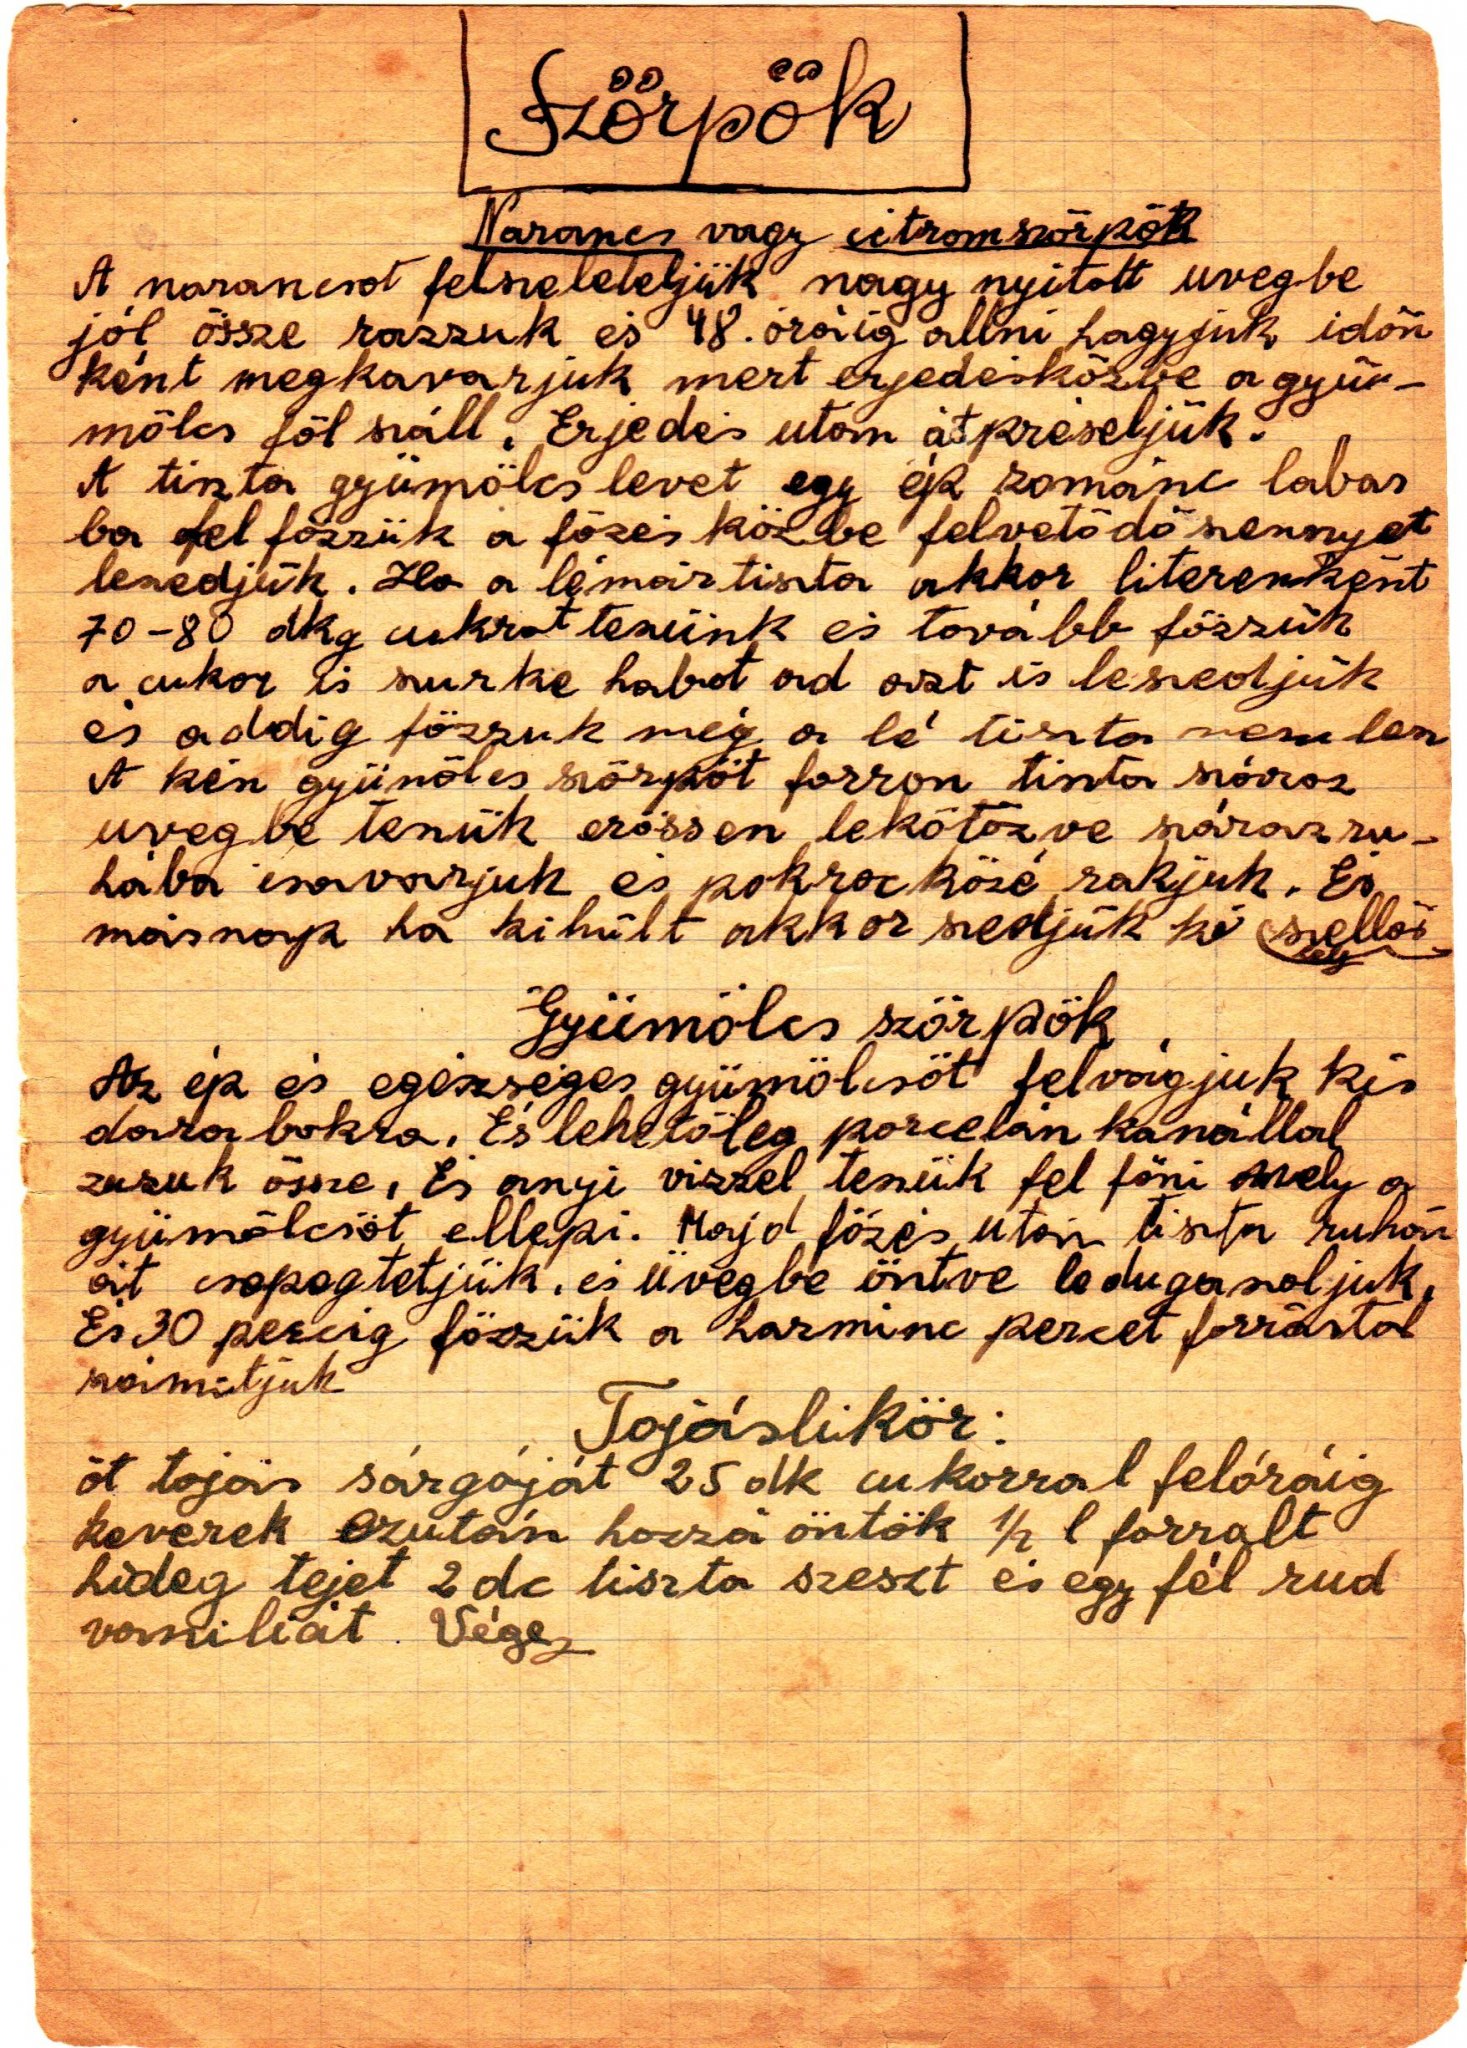 Szörpök
Narancs vagy citromszörpök
A narancsot felszeleteljük nagy nyitott uvegbe
jól össze razzuk es 48. óráig allni hagyjuk időn
ként megkavarjuk mert erjedésközbe a gyüü-
mölcs föl száll. Erjedés utan átpréseljük.
A tiszta gyümölcs levet egy ép zománc labas
ba fel főzzük a főzés közbe felvetődő szennyet
leszedjük. Ha a lé már tiszta akkor literenként
70-80 dkg cukrot teszünk és tovább főzzük
a cukor is szürke habot ad azt is leszedjük
és addig főzzuk még a lé tiszta nem lesz
A kész gyümölcs szörpöt forron tiszta száraz
uvegbe teszük erössen lekötözve száraz ru-
hába csavarjuk és pokroc közé rakjuk. És
másnap ha kihült akkor szedjük ki szellős
hely
Gyümölcs szörpök
Az ép és egészséges gyümölcsöt felvágjuk kis
darabokra. És lehetőleg porcelán kanállal
zuzuk össze, És anyi vizzel teszük fel főni mely a
gyümölcsöt ellepi. Majd főzés után tiszta ruhán
át csepegtetjük. és üvegbe öntve ledugaszoljuk.
És 30 percig főzzük a harminc percet forrástol
számitjuk
Tojáslikör:
öt tojás sárgáját 25 dk cukorral felóráig
keverek ezután hozzá öntök 1/2 l forralt
hideg tejet 2 dc tiszta szeszt és egy fél rud
vaniliát. Vége